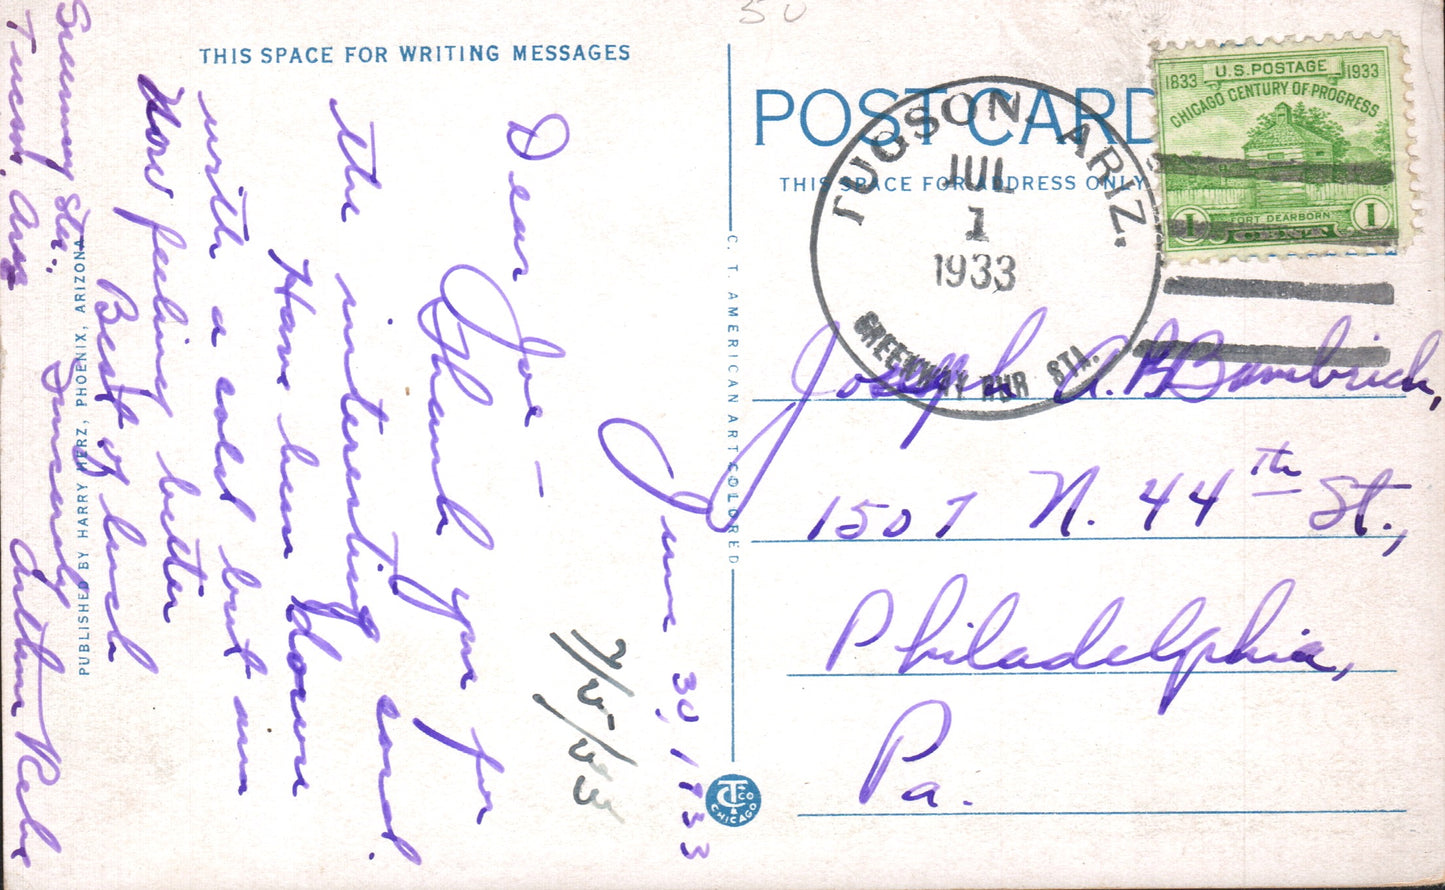 50
THIS SPACE FOR WRITING MESSAGES
POST CARD
THIS SPACE FOR ADDRESS ONLY
June 30, 1933
Dear Joe –
Thank you for
the interesting card.
Have been down
with a cold but am
now feeling better
Best of luck
Sincerely
Arthur
Sta.,
Tucson, Ariz
7/5/33
PUBLISHED BY HARRY HERZ, PHOENIX, ARIZONA
C. T. AMERICAN ART COLORED
CTCO
CHICAGO
TUCSON, ARIZ.
JUL
1
1933
GREENWAY RUR STA.
U.S. POSTAGE
1833 1933
CHICAGO CENTURY OF PROGRESS
FORT DEARBORN
1 CENT 1
Joseph A. Bambrick,
1507 N. 44th St.,
Philadelphia,
Pa.